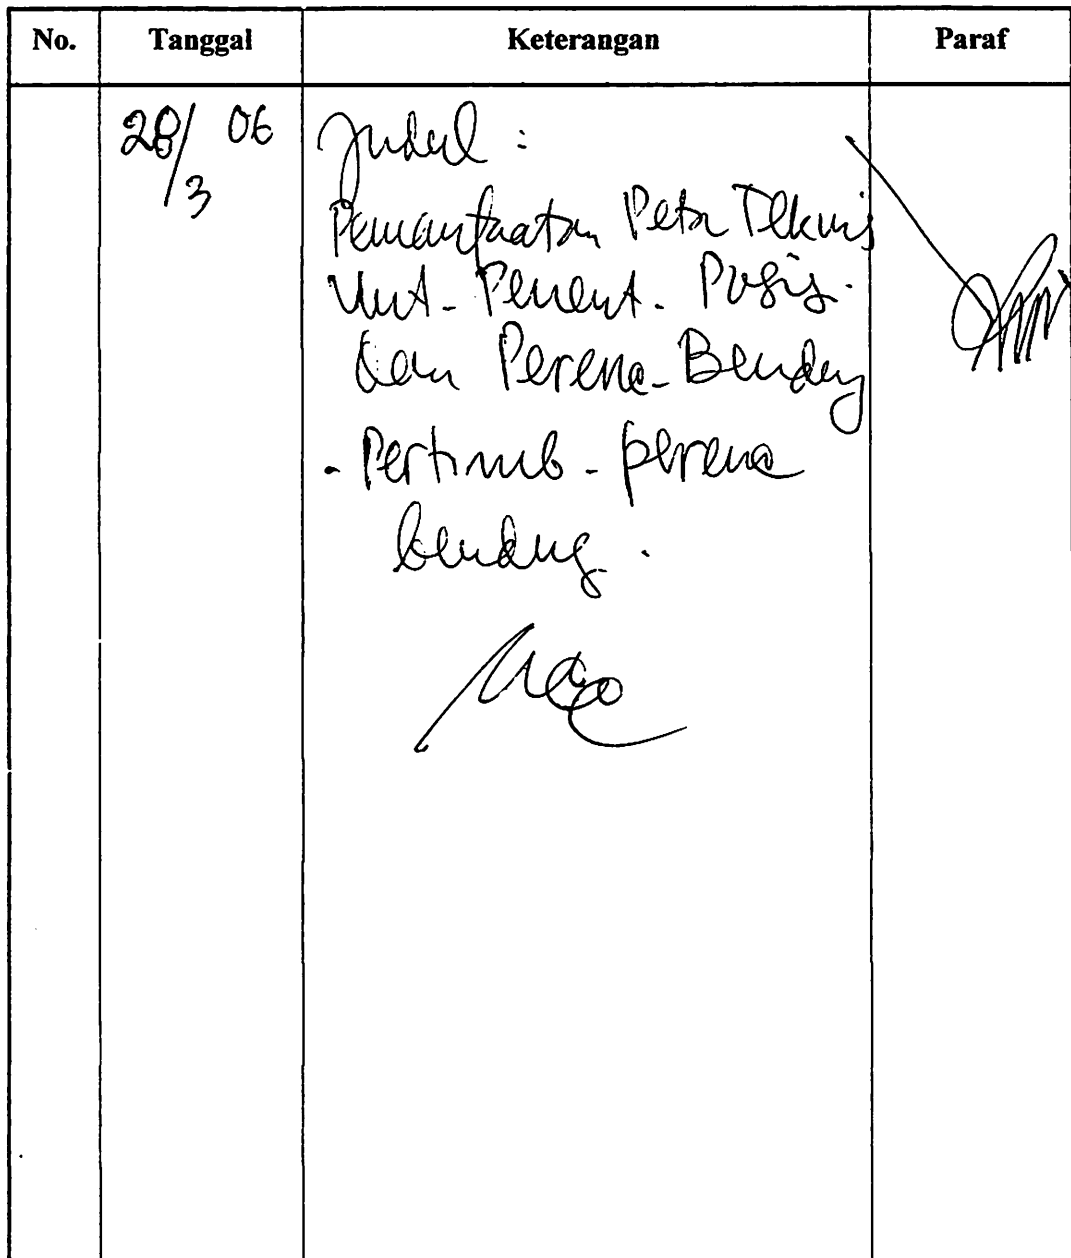 No. Tanggal Keterangan Paraf
28/3 06
Judul :
Pemanfaatan Peta Teknis
Unt. Penent. Posis.
dan Perenc. Bendung
- Pertimb. perenc
bendung.